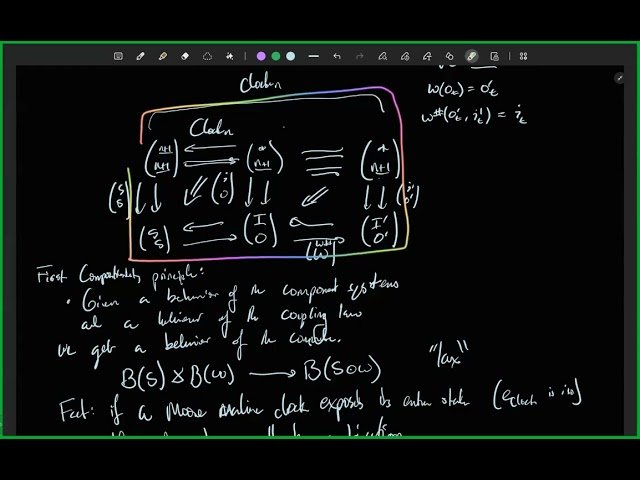 Clock n
w(o_t) = o'_t
w#(o'_t, i'_t) = i_t
Clock n
(n+1 n+1) (* n+1) (* n+1)
(s s) (i o) (i' o')
(S S) (I O) (w# w) (I' O')
First Compositionality principle:
• Given a behavior of the component systems
and a behavior of the coupling law
we get a behavior of the
B(S) × B(w) → B(S o w)
"lax"
Fact: if a Moore machine clock exposes its entire state (e_clock is iso)